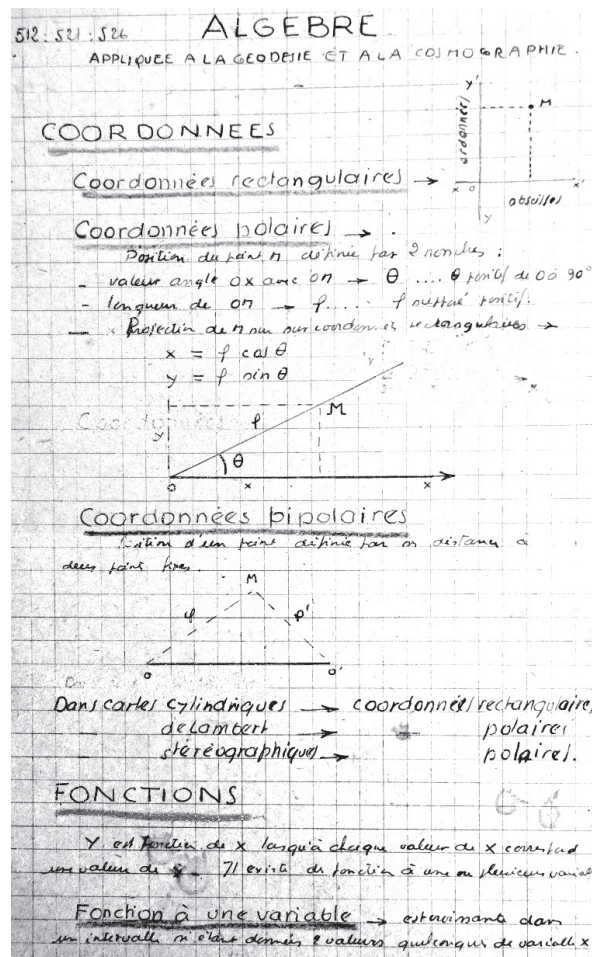 512 : 521 : 526
ALGEBRE
APPLIQUEE A LA GEODESIE ET A LA COSMOGRAPHIE.
COORDONNEES
Coordonnées rectangulaires →
Y'
ordonnées
M
x O x'
Y
abscisses
Coordonnées polaires → .
Position du point M définie par 2 nombres :
- valeur angle OX avec OM → θ .... θ positif de 0 à 90°
- longueur de OM → ρ ..... ρ positif.
Projection de M sur coordonnées rectangulaires →
x = ρ cos θ
y = ρ sin θ
Coordonnées
M
ρ
y
θ
O x x
Coordonnées bipolaires
Position d'un point définie par ses distances à
deux points fixes.
M
ρ ρ'
O O'
Dans cartes cylindriques → coordonnées rectangulaires
— de Lambert → — polaires
— stéréographiques → polaires.
FONCTIONS
Y est fonction de X lorsqu'à chaque valeur de X correspond
une valeur de Y _ Il existe des fonctions à une ou plusieurs
Fonction à une variable → est croissante dans
un intervalle si étant données 2 valeurs quelconques de variable x